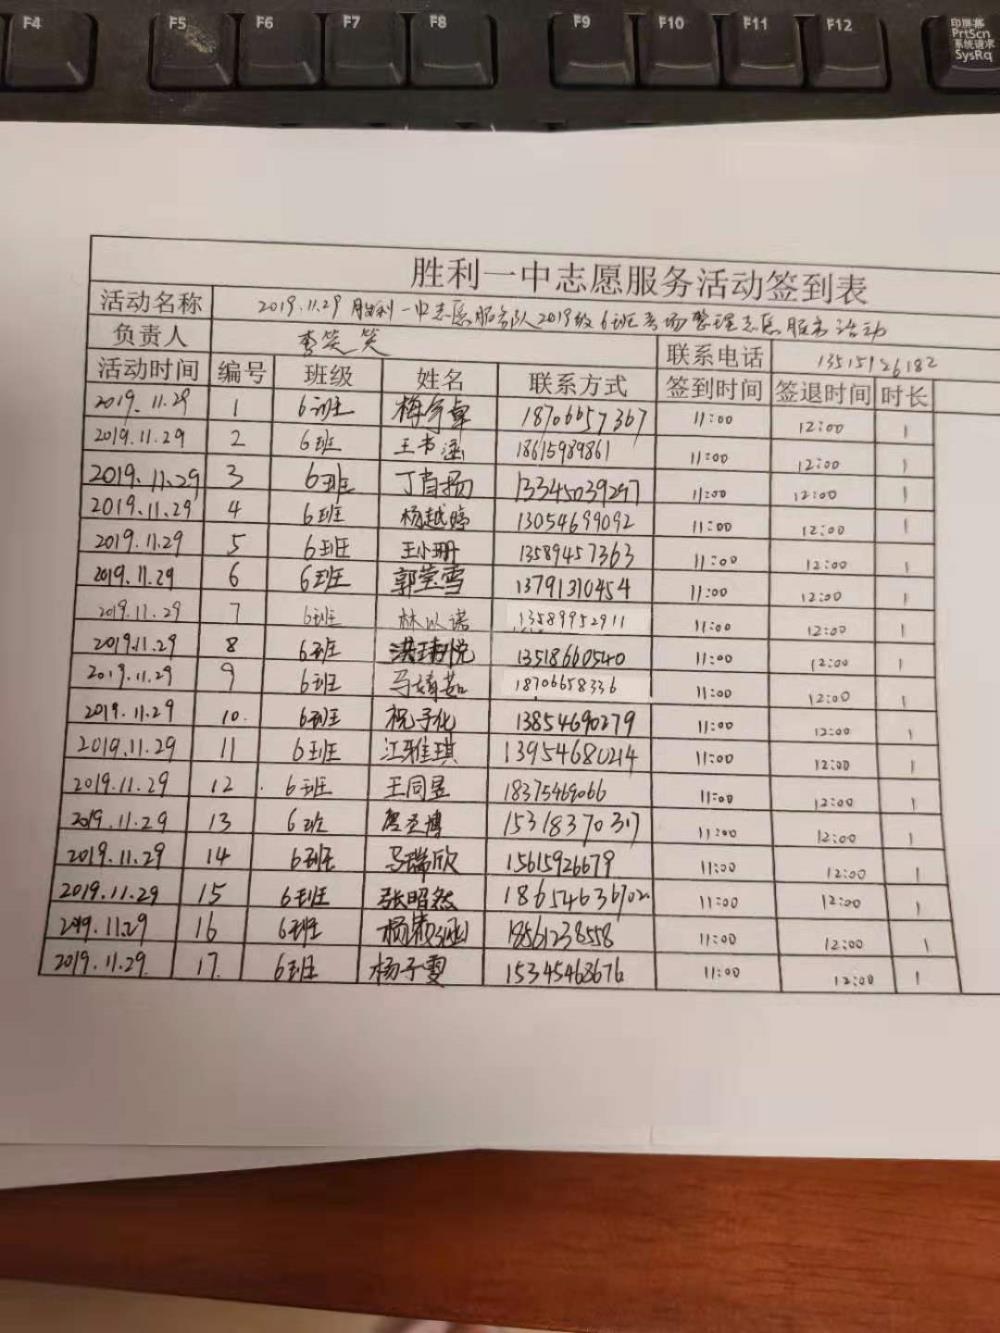 F4 F5 F6 F7 F8 F9 F10 F11 F12 印屏幕
PrtScn
系统请求
SysRq
胜利一中志愿服务活动签到表
活动名称 2019.11.29 胜利一中志愿服务队2019级6班考场整理志愿服务活动
负责人 李笑笑 联系电话 13515926182
活动时间 编号 班级 姓名 联系方式 签到时间 签退时间 时长
2019.11.29 1 6班 18706657367 11:00 12:00 1
2019.11.29 2 6班 王书涵 18615989861 11:00 12:00 1
2019.11.29 3 6班 丁肖扬 13345039297 11:00 12:00 1
2019.11.29 4 6班 杨越婷 13054699092 11:00 12:00 1
2019.11.29 5 6班 王小珊 13589457363 11:00 12:00 1
2019.11.29 6 6班 郭莹雪 13791310454 11:00 12:00 1
2019.11.29 7 6班 林以诺 13589952911 11:00 12:00 1
2019.11.29 8 6班 13518660540 11:00 12:00 1
2019.11.29 9 6班 马靖茹 18706658336 11:00 12:00 1
2019.11.29 10. 6班 祝子化 13854690279 11:00 12:00 1
2019.11.29 11 6班 江雅琪 13954680214 11:00 12:00 1
2019.11.29 12 6班 王同昱 18375469066 11:00 12:00 1
2019.11.29 13 6班 15318370317 11:00 12:00 1
2019.11.29 14 6班 马瑞欣 15615926679 11:00 12:00 1
2019.11.29 15 6班 张昭然 18654636702 11:00 12:00 1
2019.11.29 16 6班 18561238558 11:00 12:00 1
2019.11.29 17. 6班 杨子雯 15345468676 11:00 12:00 1